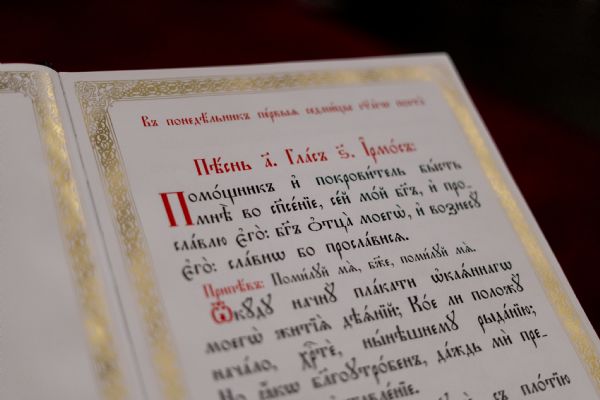 Въ понедѣльникъ первыѧ седмицы ст҃агѡ поста̀
Пѣ́снь а҃. Гла́съ ѕ҃. І҆рмо́съ:
Помо́щникъ и҆ покрови́тель бы́сть
мнѣ̀ во сп҃се́нїе, се́й мо́й бг҃ъ, и҆ про-
сла́влю є҆го̀: бг҃ъ ѻ҆тца̀ моегѡ̀, и҆ вознесꙋ̀
є҆го̀: сла́внѡ бо просла́висѧ.
Припѣ́въ: Поми́лꙋй мѧ̀, бж҃е, поми́лꙋй мѧ̀.
Ѿкꙋ́дꙋ начнꙋ̀ пла́кати ѻ҆каѧ́ннагѡ
моегѡ̀ житїѧ̀ дѣѧ́нїй; Ко́е ли положꙋ̀
нача́ло, хрⷭ҇тѐ, ны́нѣшнемꙋ рыда́нїю;
Но ꙗ҆́кѡ бл҃гоꙋтро́бенъ, да́ждь мѝ пре-
съ пло́тїю